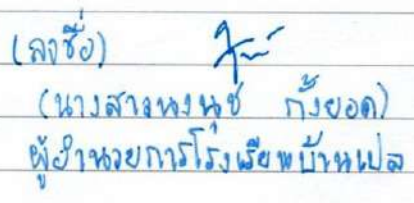 (ลงชื่อ)
(นางสาวนงนุช กั้งยอด)
ผู้อำนวยการโรงเรียนบ้านแปล